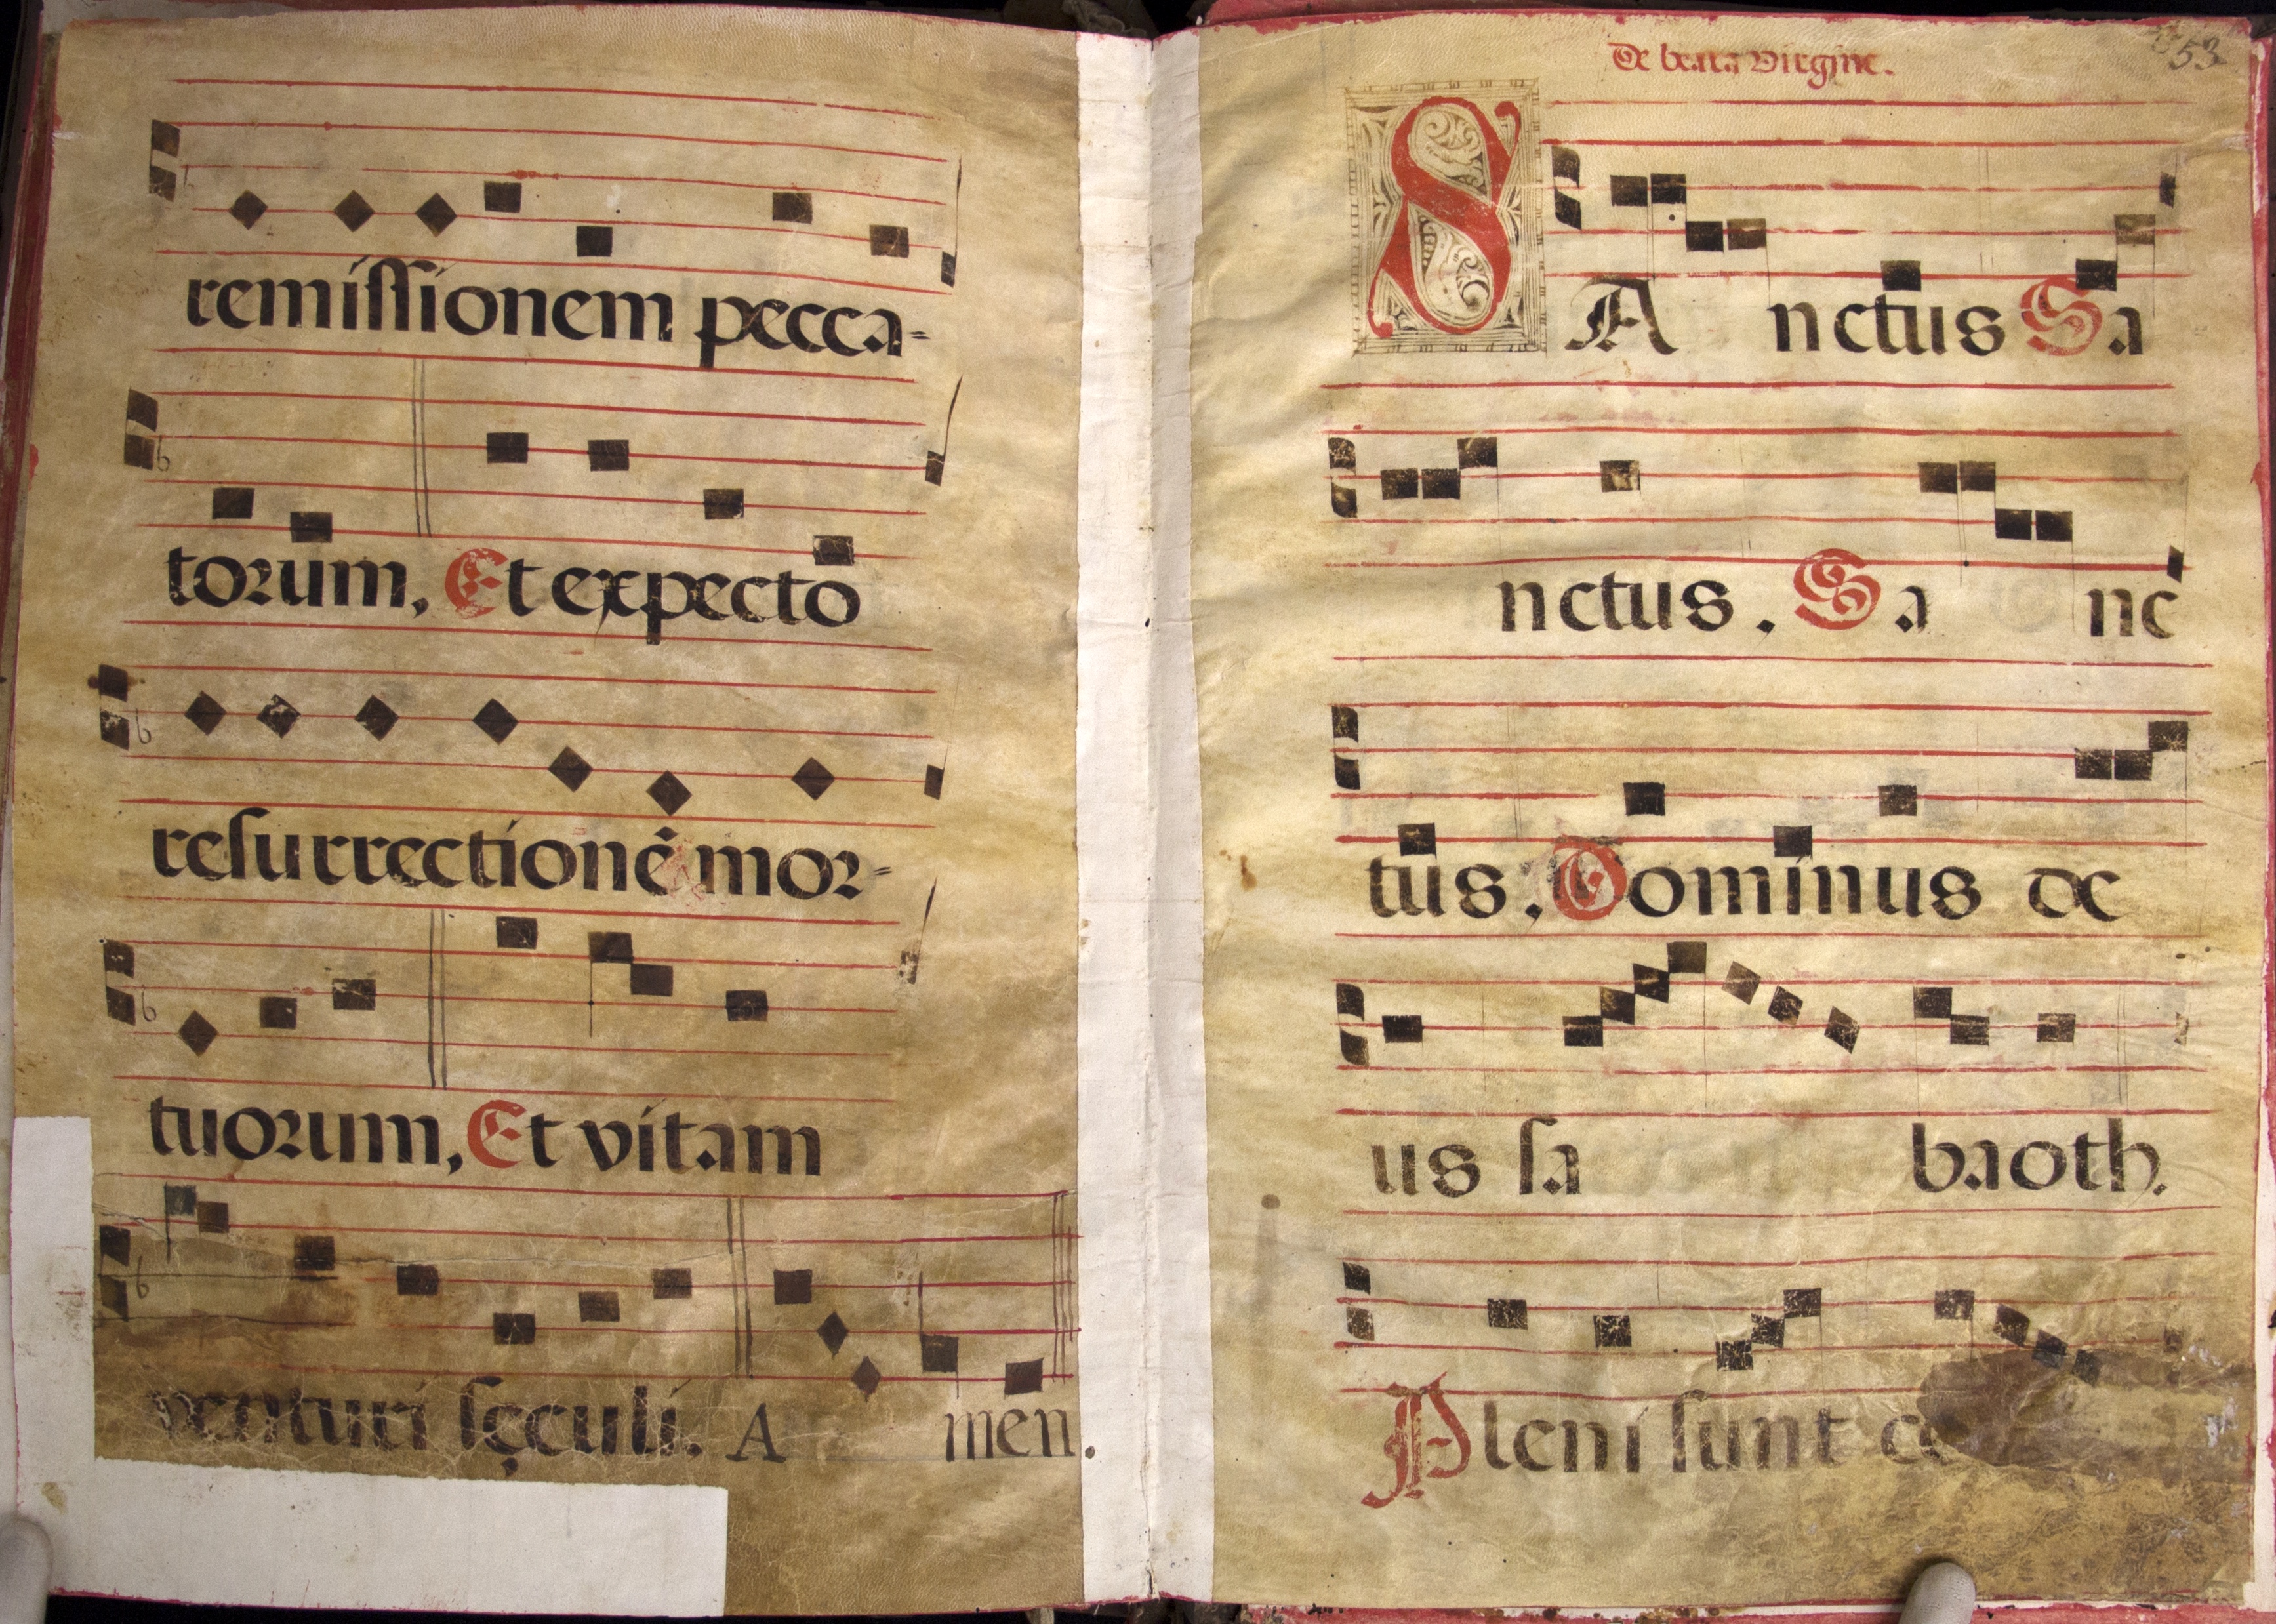 remissionem pecca-
torum, Et expecto
resurrectionẽ mor-
tuorum, Et vitam
venturi sęculi. A men.
De beata Virgine.
53
SA nctus Sa
nctus. Sa nc
tus. Dominus de
us sa baoth.
Pleni sunt